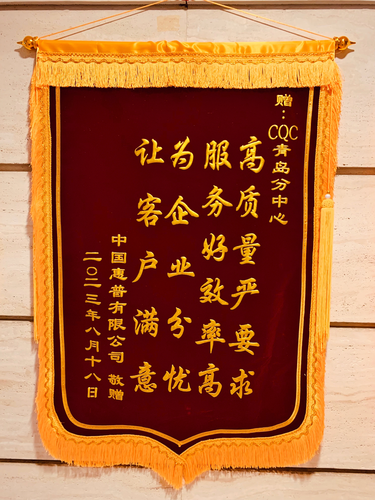 赠：CQC青岛分中心
高质量严要求
服务好效率高
为企业分忧
让客户满意
中国惠普有限公司 敬赠
二〇二三年八月十八日